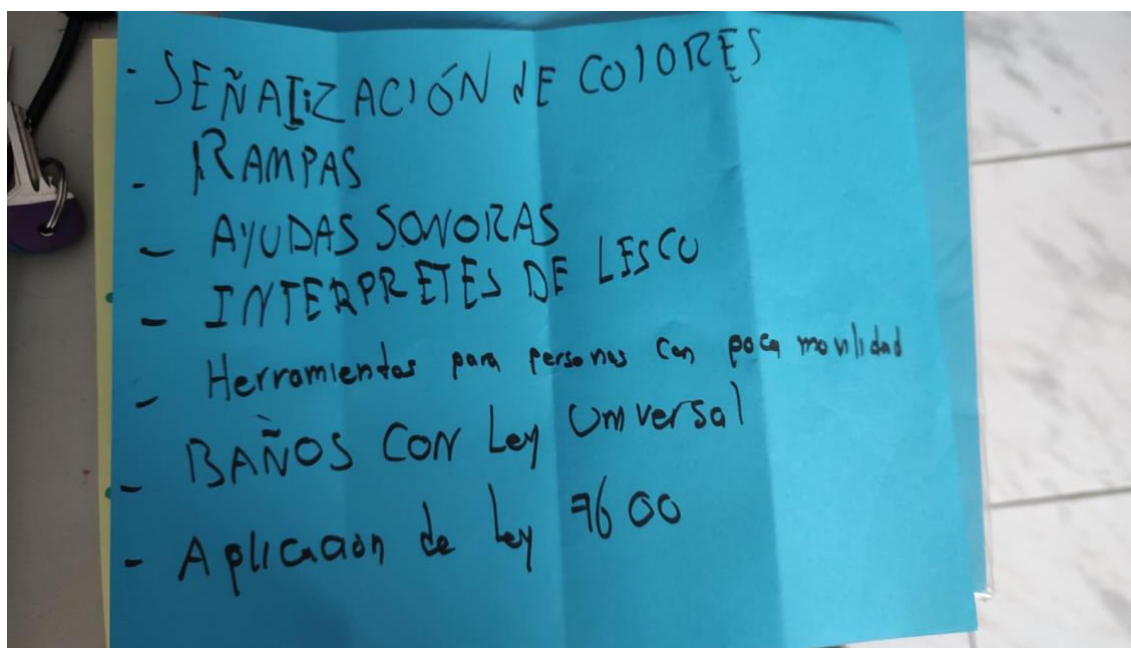 - SEÑALiZACIÓN dE COlORES
- RAMPAS
- AYUDAS SONORAS
- INTERPRETES DE LESCO
- Herramientas para personas con poca movilidad
- BAÑOS CON Ley Universal
- Aplicación de ley 7600